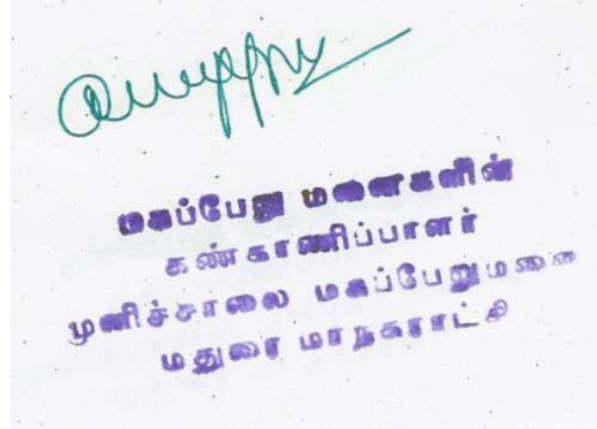 மகப்பேறு மனைகளின்
கண்காணிப்பாளர்
முனிச்சாலை மகப்பேறுமனை
மதுரை மாநகராட்சி